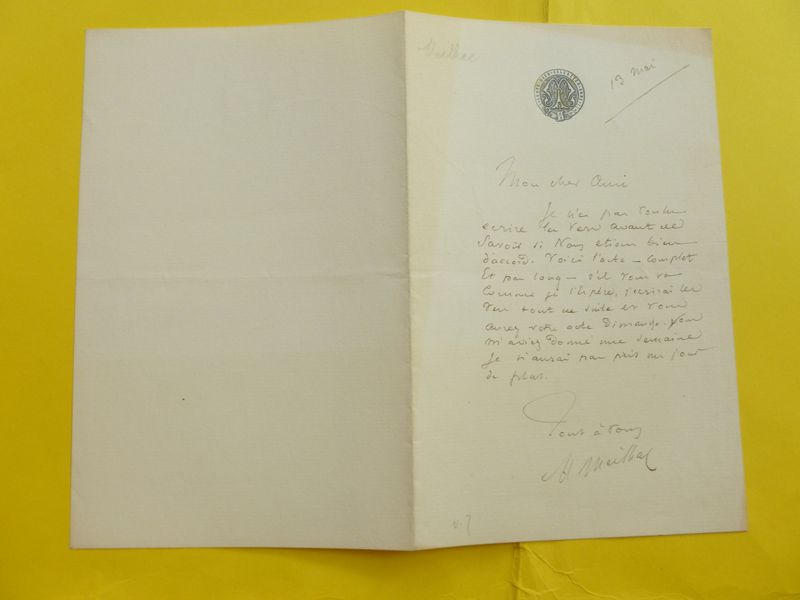 Meilhac
13 mai
Mon cher Ami
Je n'ai pas voulu
ecrire les vers avant de
savoir si nous etions bien
d'accord. Voici l'acte – complet
Et pas long – s'il vous va
Comme je l'espère, j'ecrirai les
vers tout de suite et vous
aurez votre acte Dimanche. Vous
m'aviez donné une semaine
je n'aurai pas pris un jour
de plus.
Tout à vous
H Meilhac